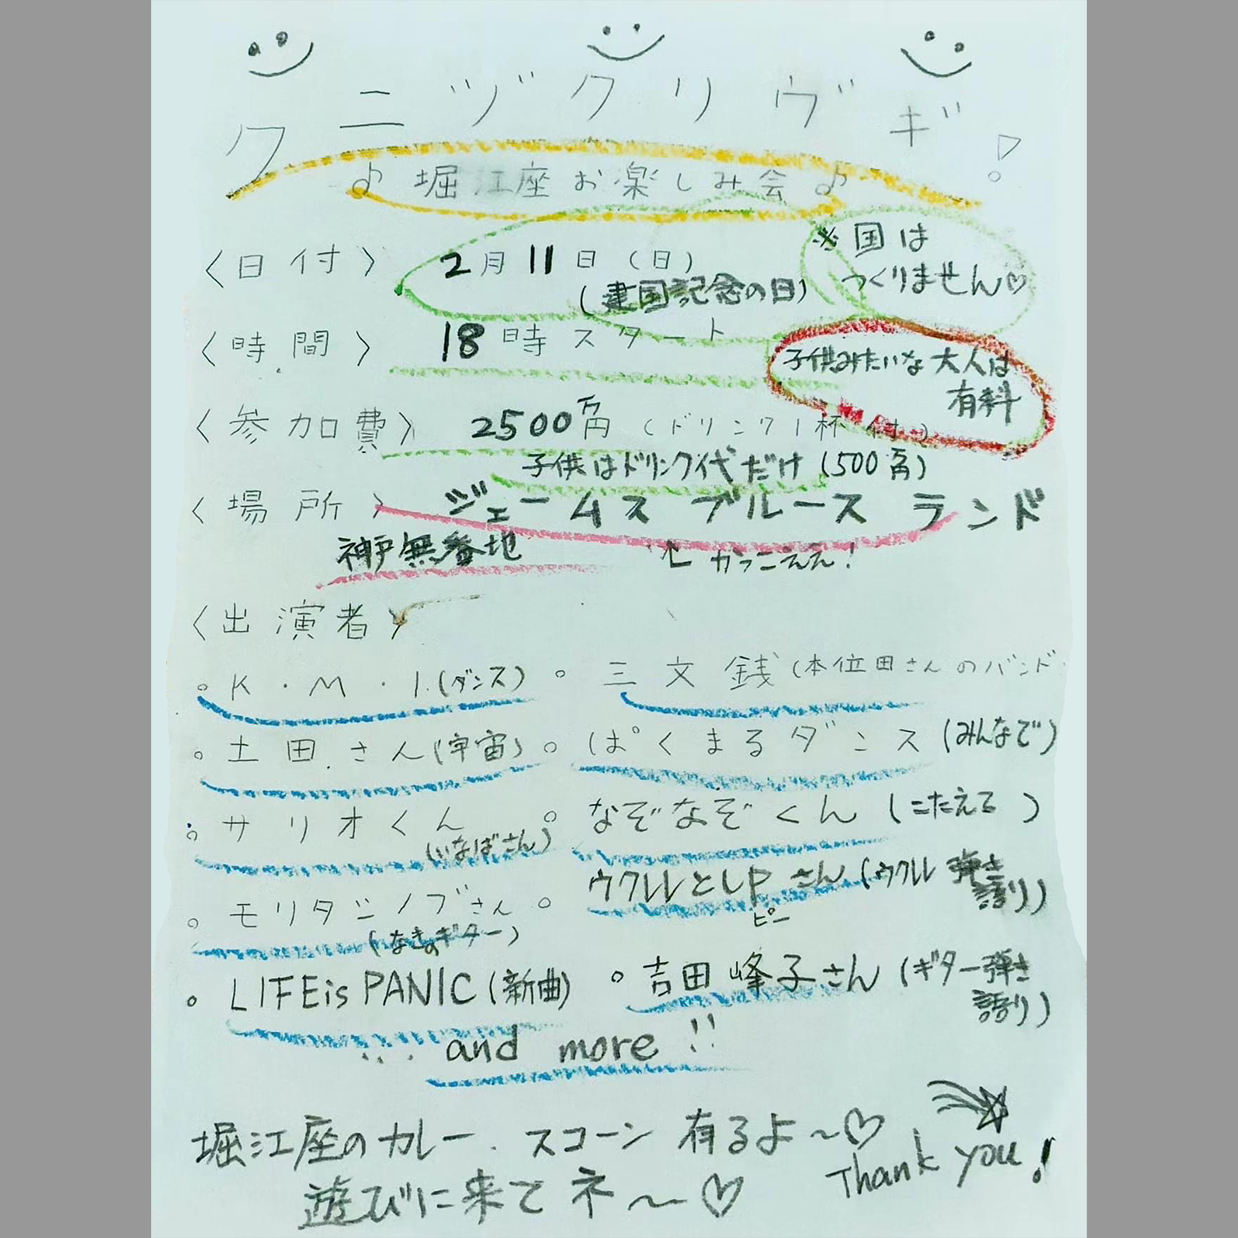 クニヅクリヴギ!
♪堀江座お楽しみ会♪
〈日付〉 2月11日(日)
(建国記念の日)
※国は
つくりません♡
〈時間〉 18時スタート
子供みたいな大人は
有料
〈参加費〉 2500円(ドリンク1杯付)
子供はドリンク代だけ(500円)
〈場所〉 ジェームスブルースランド
神戸無番地
↑かっこええ!
〈出演者〉
。K・M・I.(ダンス) 。三文銭(本位田さんのバンド
。土田.さん(宇宙) 。ぱくまるダンス(みんなで)
。サリオくん 。なぞなぞくん(こたえる)
(いなばさん)
。モリタシノブさん 。ウクレレとしPさん(ウクレレ弾き語り)
ピー
(なきのギター)
。LIFEisPANIC(新曲) 。吉田峰子さん(ギター弾き語り)
... and more!!
堀江座のカレー.スコーン有るよ〜♡
遊びに来てネ〜♡
Thank you!